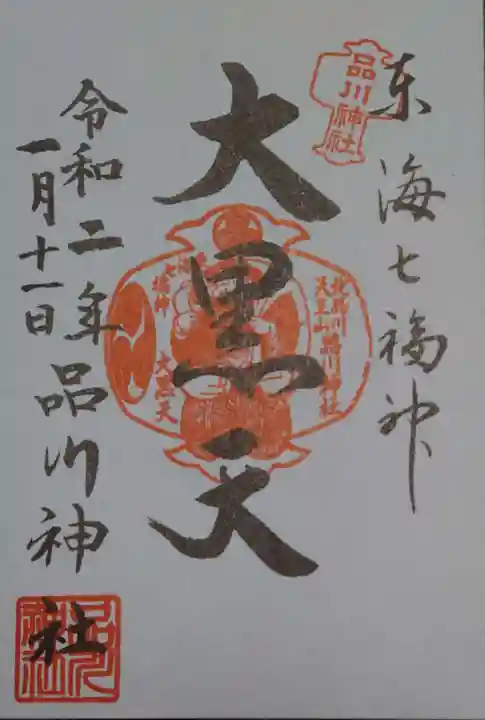 東海七福神
品川神社
大黒天
北品川
天王山 品川神社
大黒天
令和二年
一月十一日
品川神社